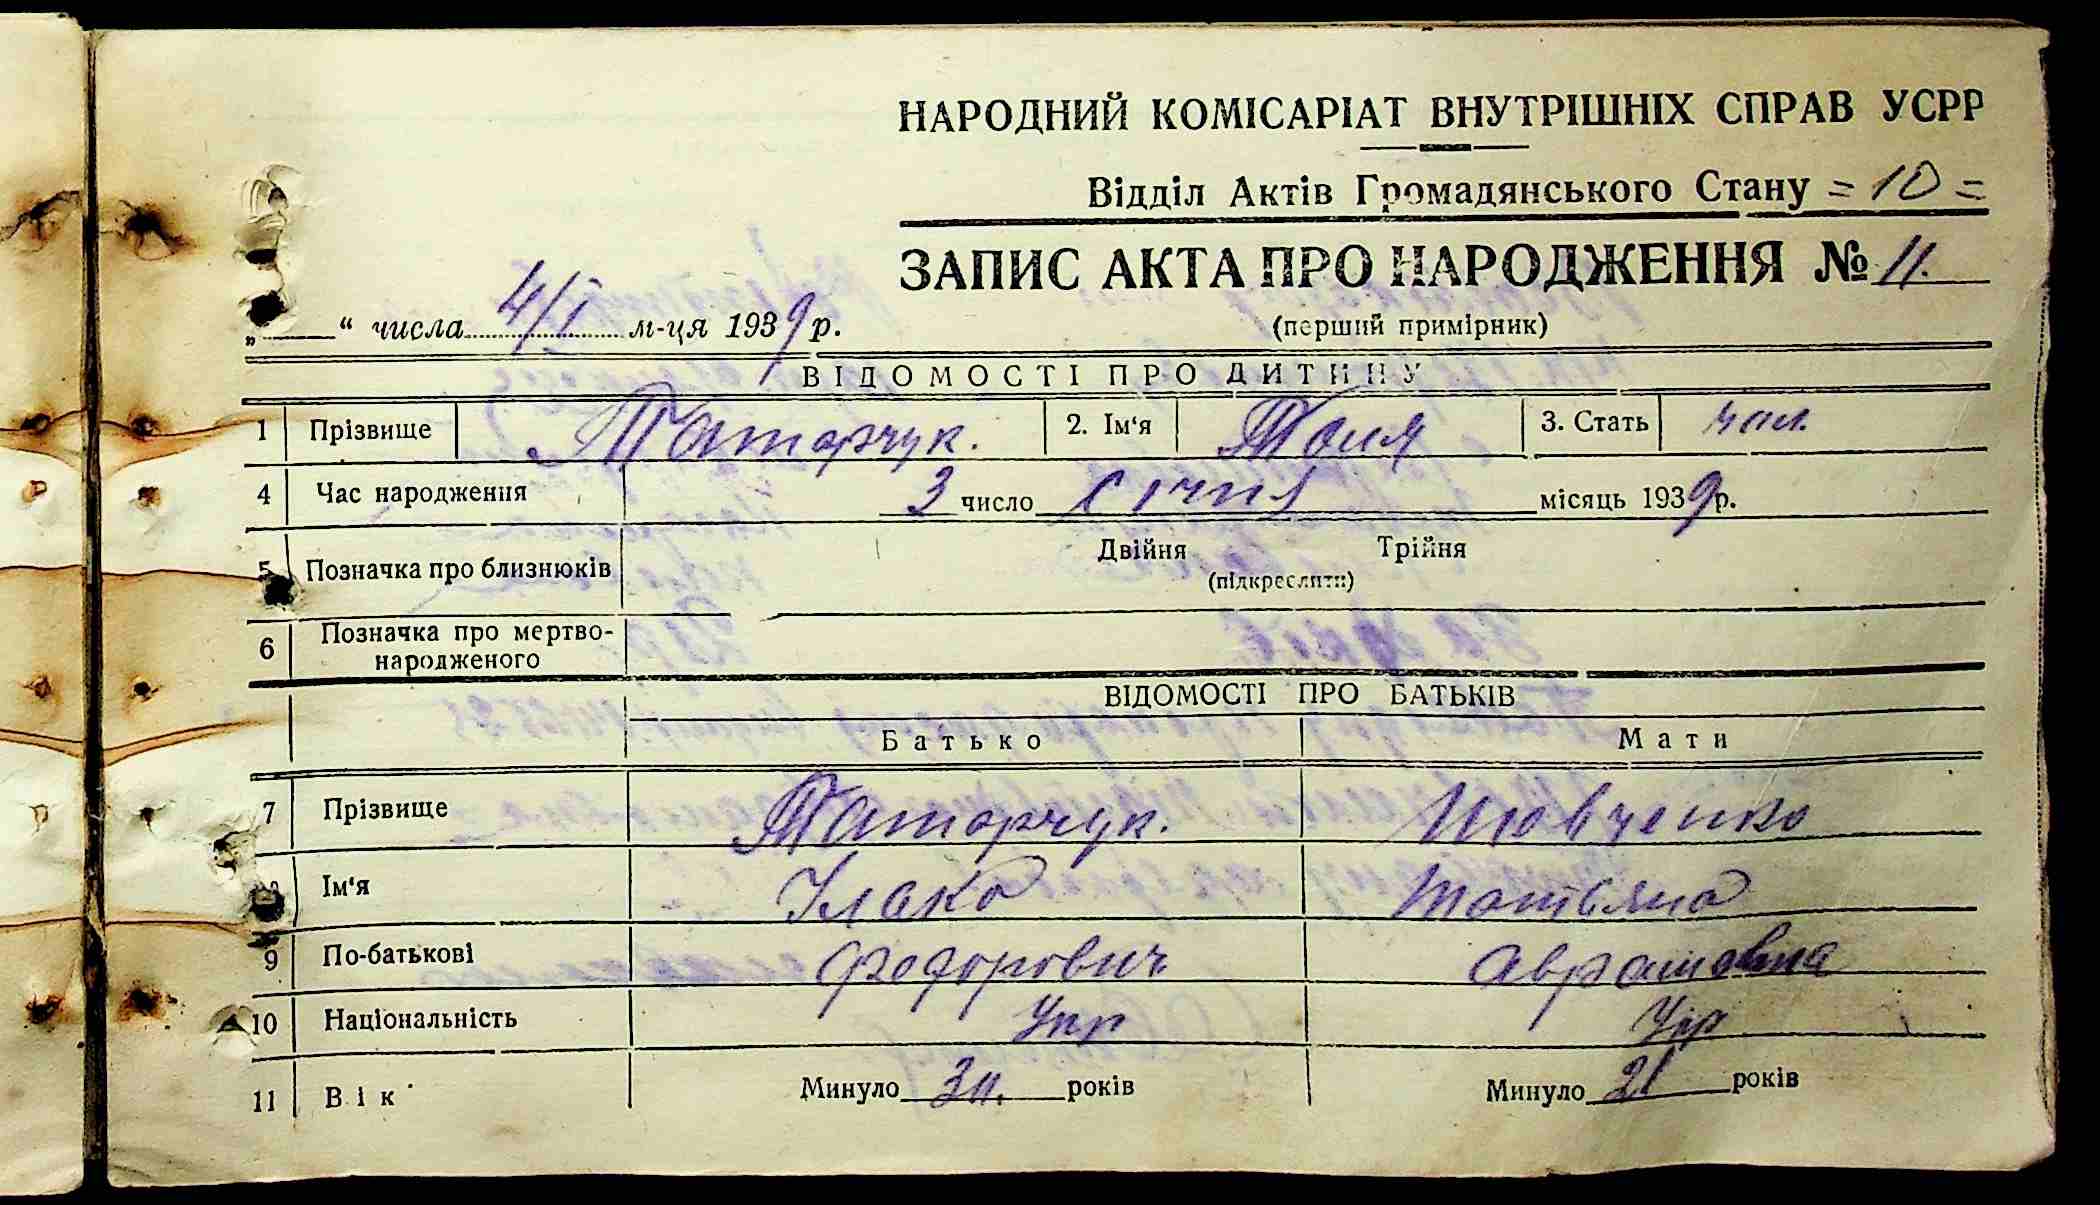 НАРОДНИЙ КОМІСАРІАТ ВНУТРІШНІХ СПРАВ УСРР
Відділ Актів Громадянського Стану =10=
ЗАПИС АКТА ПРО НАРОДЖЕННЯ № 11.
„ “ числа 4/I м-ця 1939 р.
(перший примірник)
ВІДОМОСТІ ПРО ДИТИНУ
1 Прізвище Татарчук. 2. Ім'я Толя 3. Стать чол.
4 Час народження 3 число Січня місяць 1939 р.
5 Позначка про близнюків Двійня Трійня
(підкреслити)
6 Позначка про мертво-
народженого
ВІДОМОСТІ ПРО БАТЬКІВ
Батько Мати
7 Прізвище Татарчук.
Ім'я Ілако Татьяна
9 По-батькові Федорович Аврамовна
10 Національність Укр Укр
11 Вік Минуло років Минуло 21 років